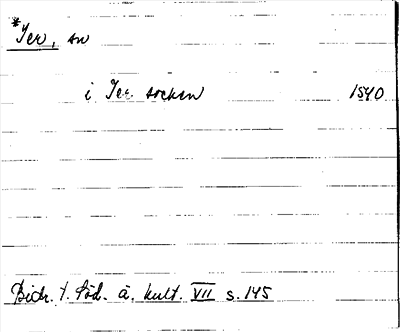 *Ter, sn
i Ter. socken 1540
Bidr. t. Söd. ä. kult. VII s. 145